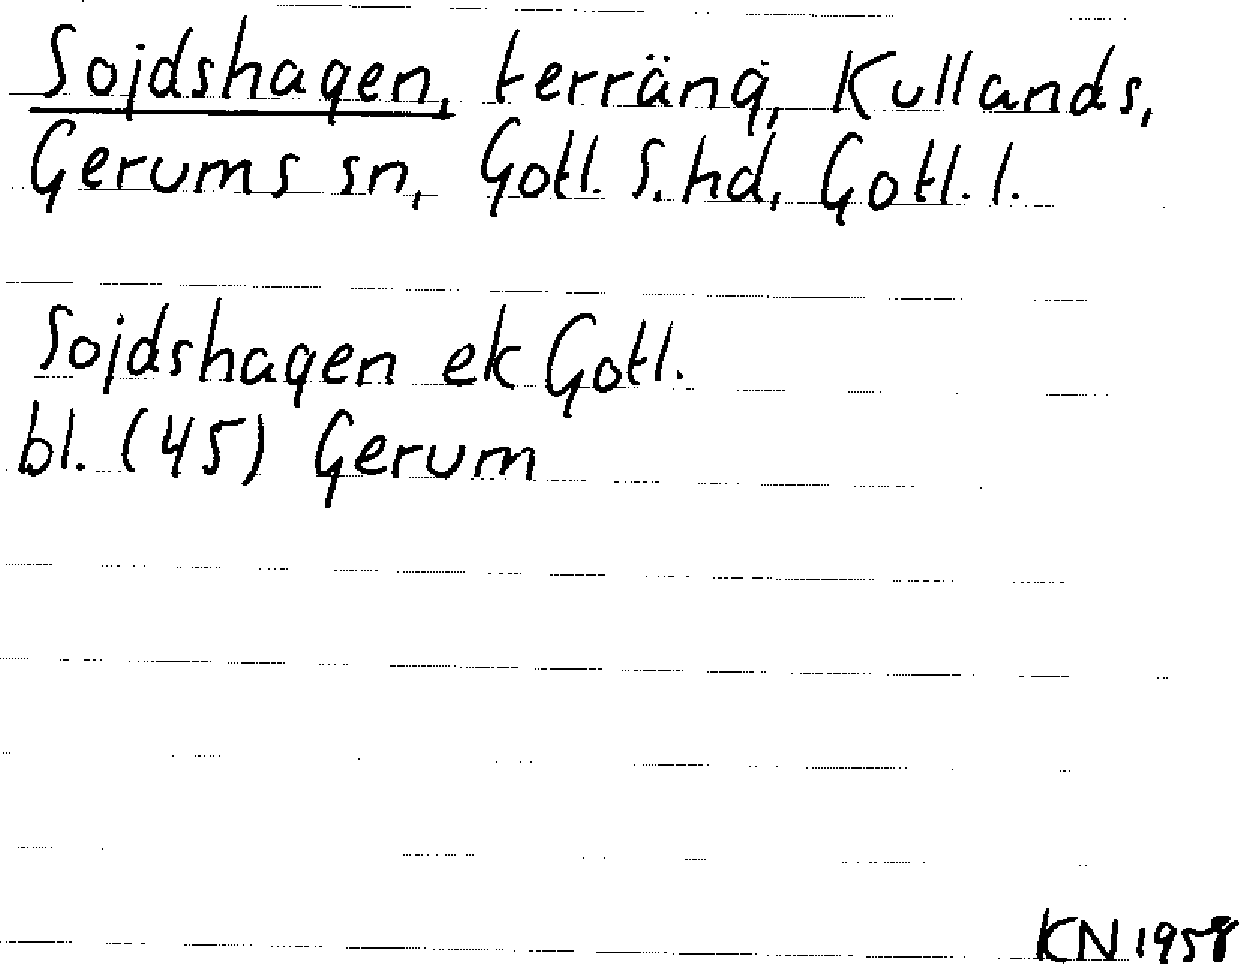 Sojdshagen, terräng, Kullands,
Gerums sn, Gotl. S. hd, Gotl. l.
Sojdshagen ek Gotl.
bl. (45) Gerum
KN 1958